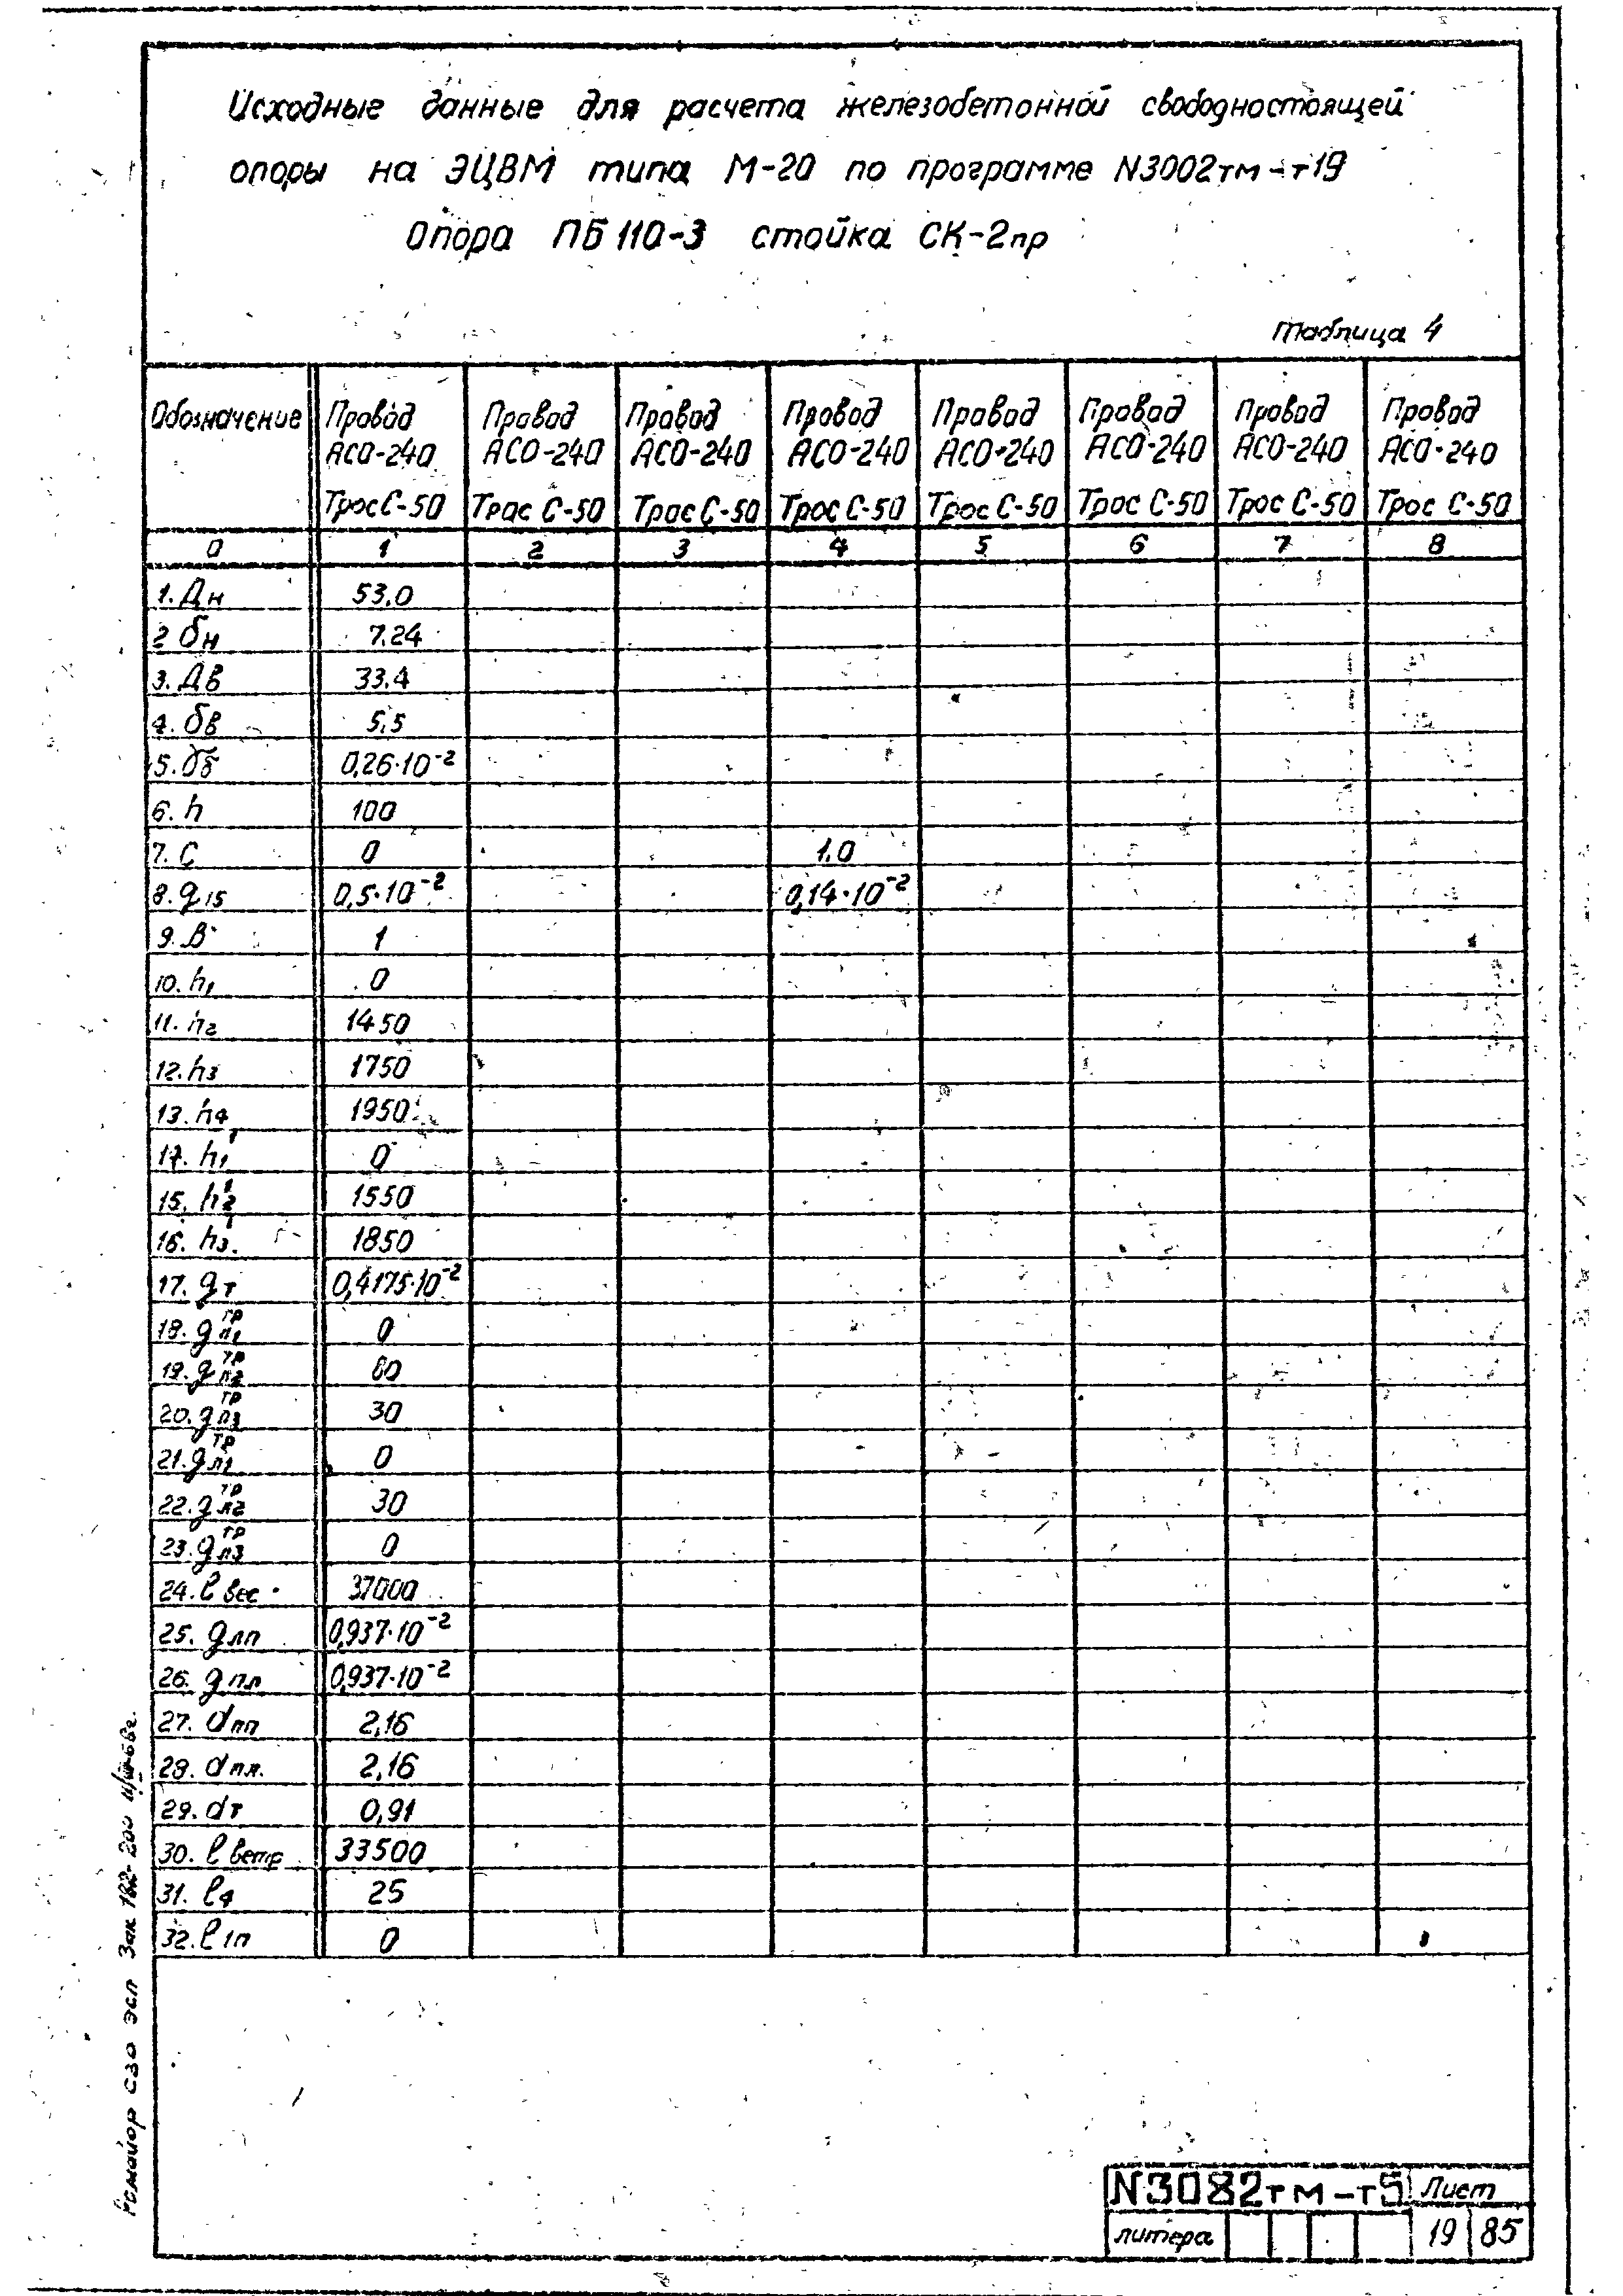 Исходные данные для расчета железобетонной свободностоящей
опоры на ЭЦВМ типа М-20 по программе N3002тм-т19
Опора ПБ110-3 стойка СК-2пр
Таблица 4
Обозначение Провод АСО-240 Трос С-50 Провод АСО-240 Трос С-50 Провод АСО-240 Трос С-50 Провод АСО-240 Трос С-50 Провод АСО-240 Трос С-50 Провод АСО-240 Трос С-50 Провод АСО-240 Трос С-50 Провод АСО-240 Трос С-50
0 1 2 3 4 5 6 7 8
1. Дн 53,0
2 бн 7.24
3. Дв 33.4
4. бв 5,5
5. бб 0,26·10⁻²
6. h 100
7. С 0 1.0
8. q15 0,5·10⁻² 0,14·10⁻²
9. В 1
10. h1 0
11. h2 1450
12. h3 1750
13. h4 1950
14. h1' 0
15. h2' 1550
16. h3' 1850
17. gт 0,4175·10⁻²
18. g тр п1 0
19. g тр п2 60
20. g тр п3 30
21. g тр л1 0
22. g тр л2 30
23. g тр л3 0
24. ℓ вес. 37000
25. gлп 0,937·10⁻²
26. g пл 0,937·10⁻²
27. d пп 2,16
28. d пл. 2,16
29. dт 0,91
30. ℓ ветр 33500
31. ℓ4 25
32. ℓ1п 0
N3082тм-т5 Лист
литера 19 85
Зак 182-200
СЗО ЭСП